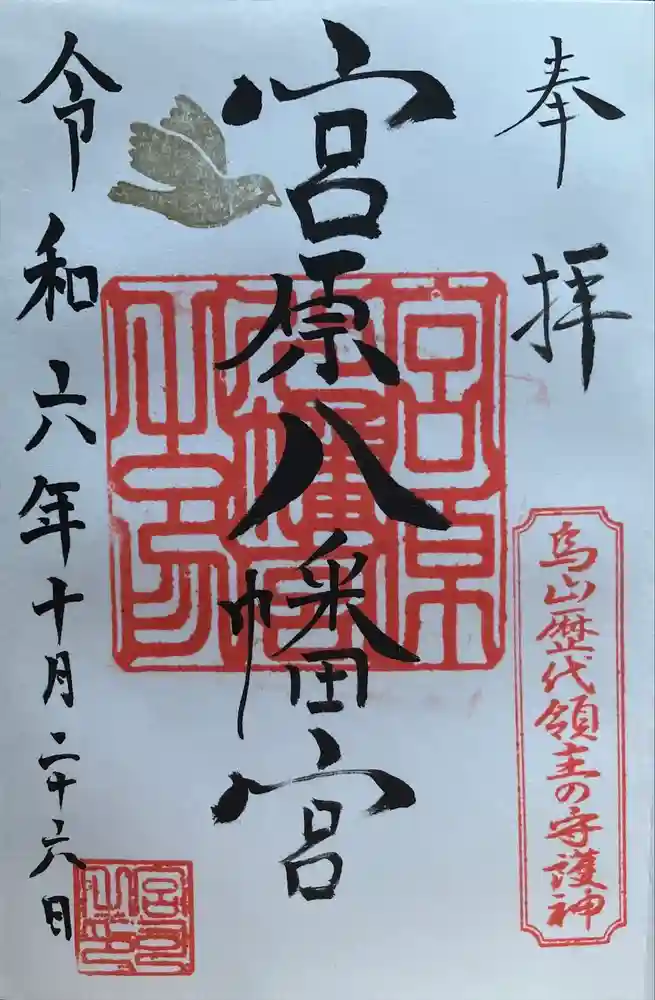 奉拝
烏山歴代領主の守護神
宮原八幡宮
宮原八幡宮之印
令和六年十月二十六日